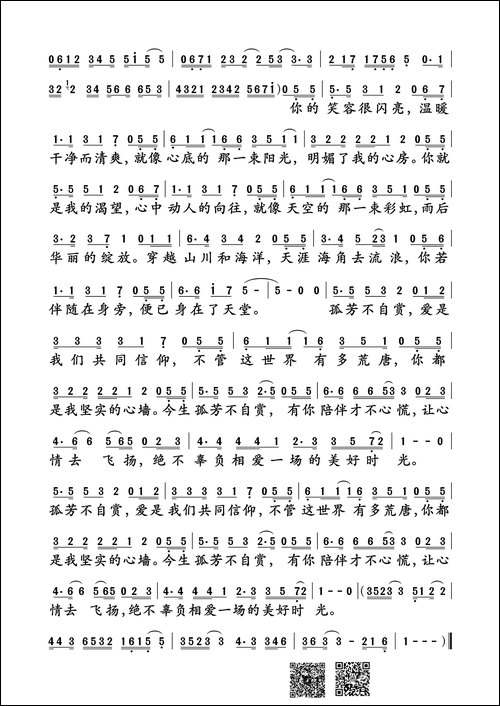 0612 345 5i55 | 0671 232 253 3·3 | 217 1756 5 0·1 |
32 12 34 566 653 | 4321 2342 567i) 055 | 5·5 3 1 2 0 6 7 |
你的 笑容很闪亮，温暖
1·1 3 1 7 055 | 6 1 1166 3 511 | 3 2 2 2 2 1 2 055 |
干净而清爽，就像 心底的 那一束阳光，明媚了我的心房。你就
5·5 5 1 2 067 | 1·1 3 1 7 055 | 6 1 1166 3 511 |
是我的渴望，心中 动人的向往，就像 天空的 那一束彩虹，雨后
3·2 3 7 1 011 | 6·4 3 4 2 055 | 3·4 5 231 055 |
华丽的绽放。穿越 山川和海洋，天涯 海角去流浪，你若
1·1 3 1 7 055 | 6·6 i 7 5 - | 5 - 0 0 | 5·5 5 3 2 012 |
伴随在身旁，便已 身在了天堂。 孤芳不自赏，爱是
3 3 3 3 1 7 055 | 6 1 1116 3 5 1 1 | 3 1 055 |
我们 共同信仰，不管 这世界 有多荒唐，你都
3 2 2 2 2 1 2 055 | 5·5 5 3 2 023 | 0·5 5 3 2 055 | 6·6 6 6 53 3 023 |
是我坚实的心墙。今生 孤芳不自赏， 有你 陪伴才不心慌，让心
4·6 6 565 023 | 4·4 4 4 1 2 3·3 | 0 3 3 5 72 | 1 - - 0 |
情去 飞扬，绝不 辜负相爱一场的美好时 光。
5·5 5 3 2 012 | 3 3 3 3 1 7 055 | 6 1 1116 3 5 1 055 |
孤芳不自赏，爱是 我们共同信仰，不管 这世界 有多荒唐，你都
3 2 2 2 2 1 2 055 | 5·5 5 3 2 023 | 0·5 5 3 2 055 | 6·6 6 6 53 3 023 |
是我坚实的心墙。今生 孤芳不自赏， 有你 陪伴才不心慌，让心
4·6 6 565 023 | 4·4 4 4 1 2 3·3 | 3 5 72 | 1 - - 0 | (3523 3 5122 |
情去 飞扬，绝不辜负相爱一场的美好时 光。
443 6532 1615 5 | 3523 3 4·3 346 | 36 3 3 - 21 6 | 1 - - - ) ‖